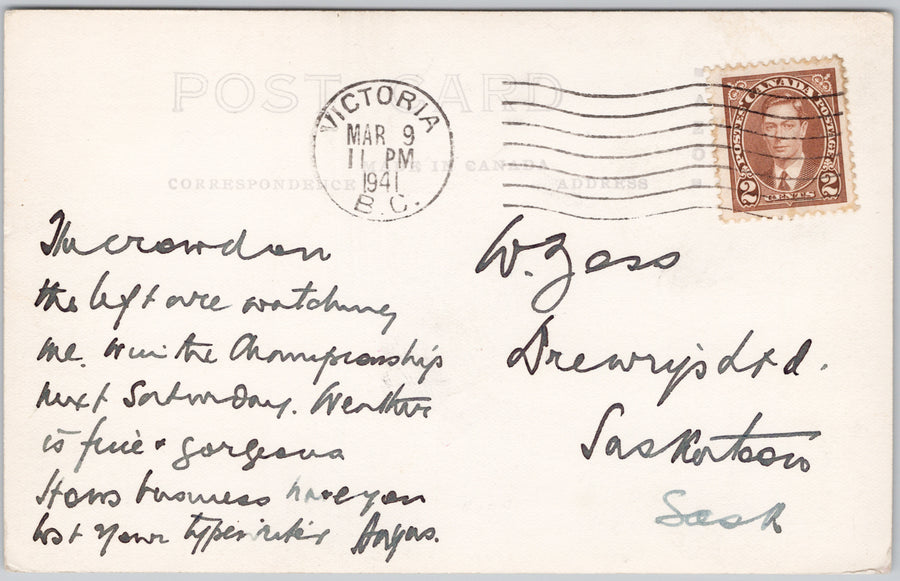 POST CARD
VICTORIA
MAR 9
11 PM
1941
B.C.
CANADA
POSTES POSTAGE
2 CENTS 2
MADE IN CANADA
CORRESPONDENCE
ADDRESS
The crowd on
the left are watching
me. Win the Championship
next Saturday. Weather
is fine & gorgeous
Hows business have you
lost your typewriter Angus.
W. Zass
Drewry's Ltd.
Saskatoon
Sask